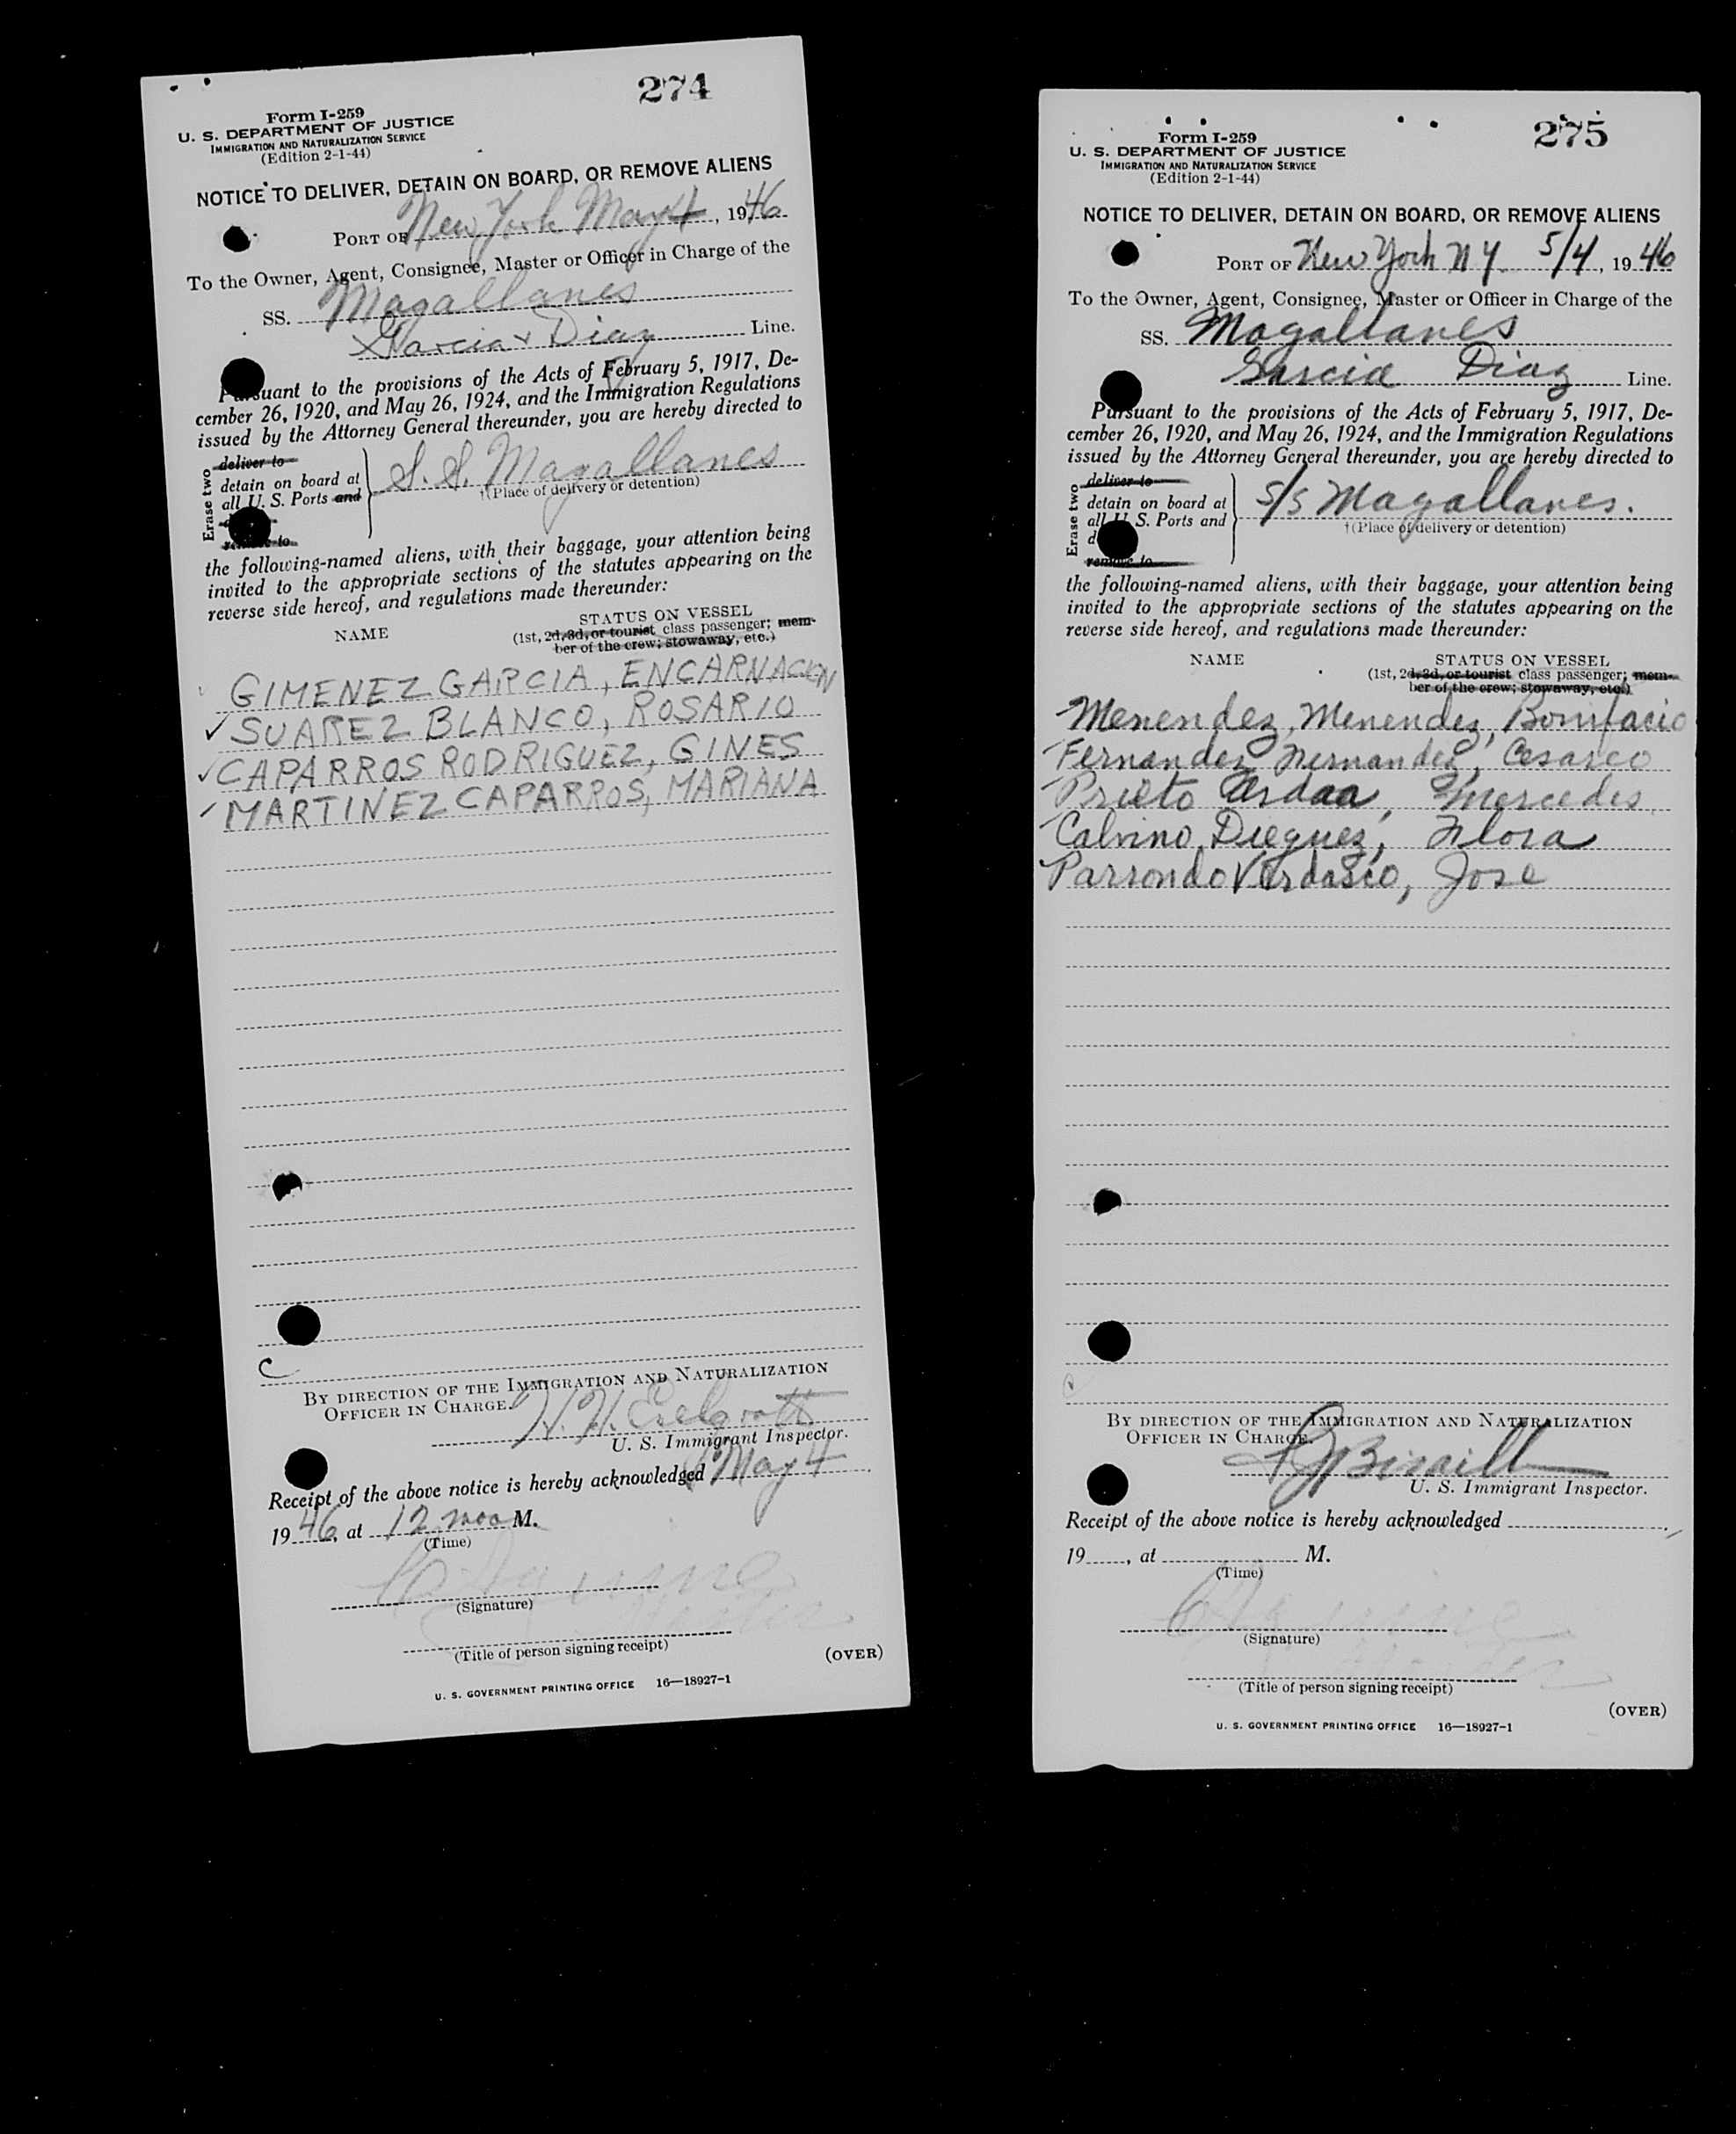 274
Form I-259
U. S. DEPARTMENT OF JUSTICE
IMMIGRATION AND NATURALIZATION SERVICE
(Edition 2-1-44)
NOTICE TO DELIVER, DETAIN ON BOARD, OR REMOVE ALIENS
PORT OF New York May 4, 1946
To the Owner, Agent, Consignee, Master or Officer in Charge of the
SS. Magallanes
Garcia & Diaz Line.
Pursuant to the provisions of the Acts of February 5, 1917, De-
cember 26, 1920, and May 26, 1924, and the Immigration Regulations
issued by the Attorney General thereunder, you are hereby directed to
Erase two
deliver to
detain on board at
all U. S. Ports and
remove to
S. S. Magallanes
†(Place of delivery or detention)
the following-named aliens, with their baggage, your attention being
invited to the appropriate sections of the statutes appearing on the
reverse side hereof, and regulations made thereunder:
NAME
STATUS ON VESSEL
(1st, 2d, 3d, or tourist class passenger; mem-
ber of the crew; stowaway, etc.)
GIMENEZ GARCIA, ENCARNACION
✓ SUAREZ BLANCO, ROSARIO
✓ CAPARROS RODRIGUEZ, GINES
✓ MARTINEZ CAPARROS, MARIANA
C
BY DIRECTION OF THE IMMIGRATION AND NATURALIZATION
OFFICER IN CHARGE.
H. H.
U. S. Immigrant Inspector.
Receipt of the above notice is hereby acknowledged May 4
1946, at 12 noo M.
(Time)
(Signature)
(Title of person signing receipt)
(OVER)
U. S. GOVERNMENT PRINTING OFFICE 16—18927-1
275
Form I-259
U. S. DEPARTMENT OF JUSTICE
IMMIGRATION AND NATURALIZATION SERVICE
(Edition 2-1-44)
NOTICE TO DELIVER, DETAIN ON BOARD, OR REMOVE ALIENS
PORT OF New York N Y. 5/4, 1946
To the Owner, Agent, Consignee, Master or Officer in Charge of the
SS. Magallanes
Garcia Diaz Line.
Pursuant to the provisions of the Acts of February 5, 1917, De-
cember 26, 1920, and May 26, 1924, and the Immigration Regulations
issued by the Attorney General thereunder, you are hereby directed to
Erase two
deliver to
detain on board at
all U. S. Ports and
remove to
S/S Magallanes.
†(Place of delivery or detention)
the following-named aliens, with their baggage, your attention being
invited to the appropriate sections of the statutes appearing on the
reverse side hereof, and regulations made thereunder:
NAME
STATUS ON VESSEL
(1st, 2d, 3d, or tourist class passenger; mem-
ber of the crew; stowaway, etc.)
Menendez, Menendez, Bonifacio
Fernandez Fernandez, Cesareo
Prieto Ardaa, Mercedes
Calvino Dieguez, Flora
Parrondo Verdasco, Jose
BY DIRECTION OF THE IMMIGRATION AND NATURALIZATION
OFFICER IN CHARGE.
U. S. Immigrant Inspector.
Receipt of the above notice is hereby acknowledged
19, at M.
(Time)
(Signature)
(Title of person signing receipt)
(OVER)
U. S. GOVERNMENT PRINTING OFFICE 16—18927-1